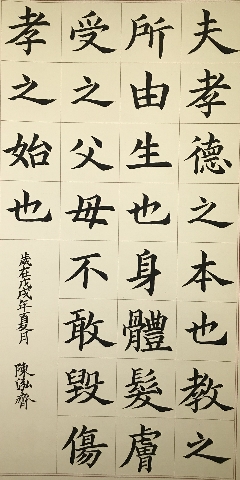 夫孝德之本也教之
所由生也身體髮膚
受之父母不敢毀傷
孝之始也
歲在戊戌年夏月
陳泓齊